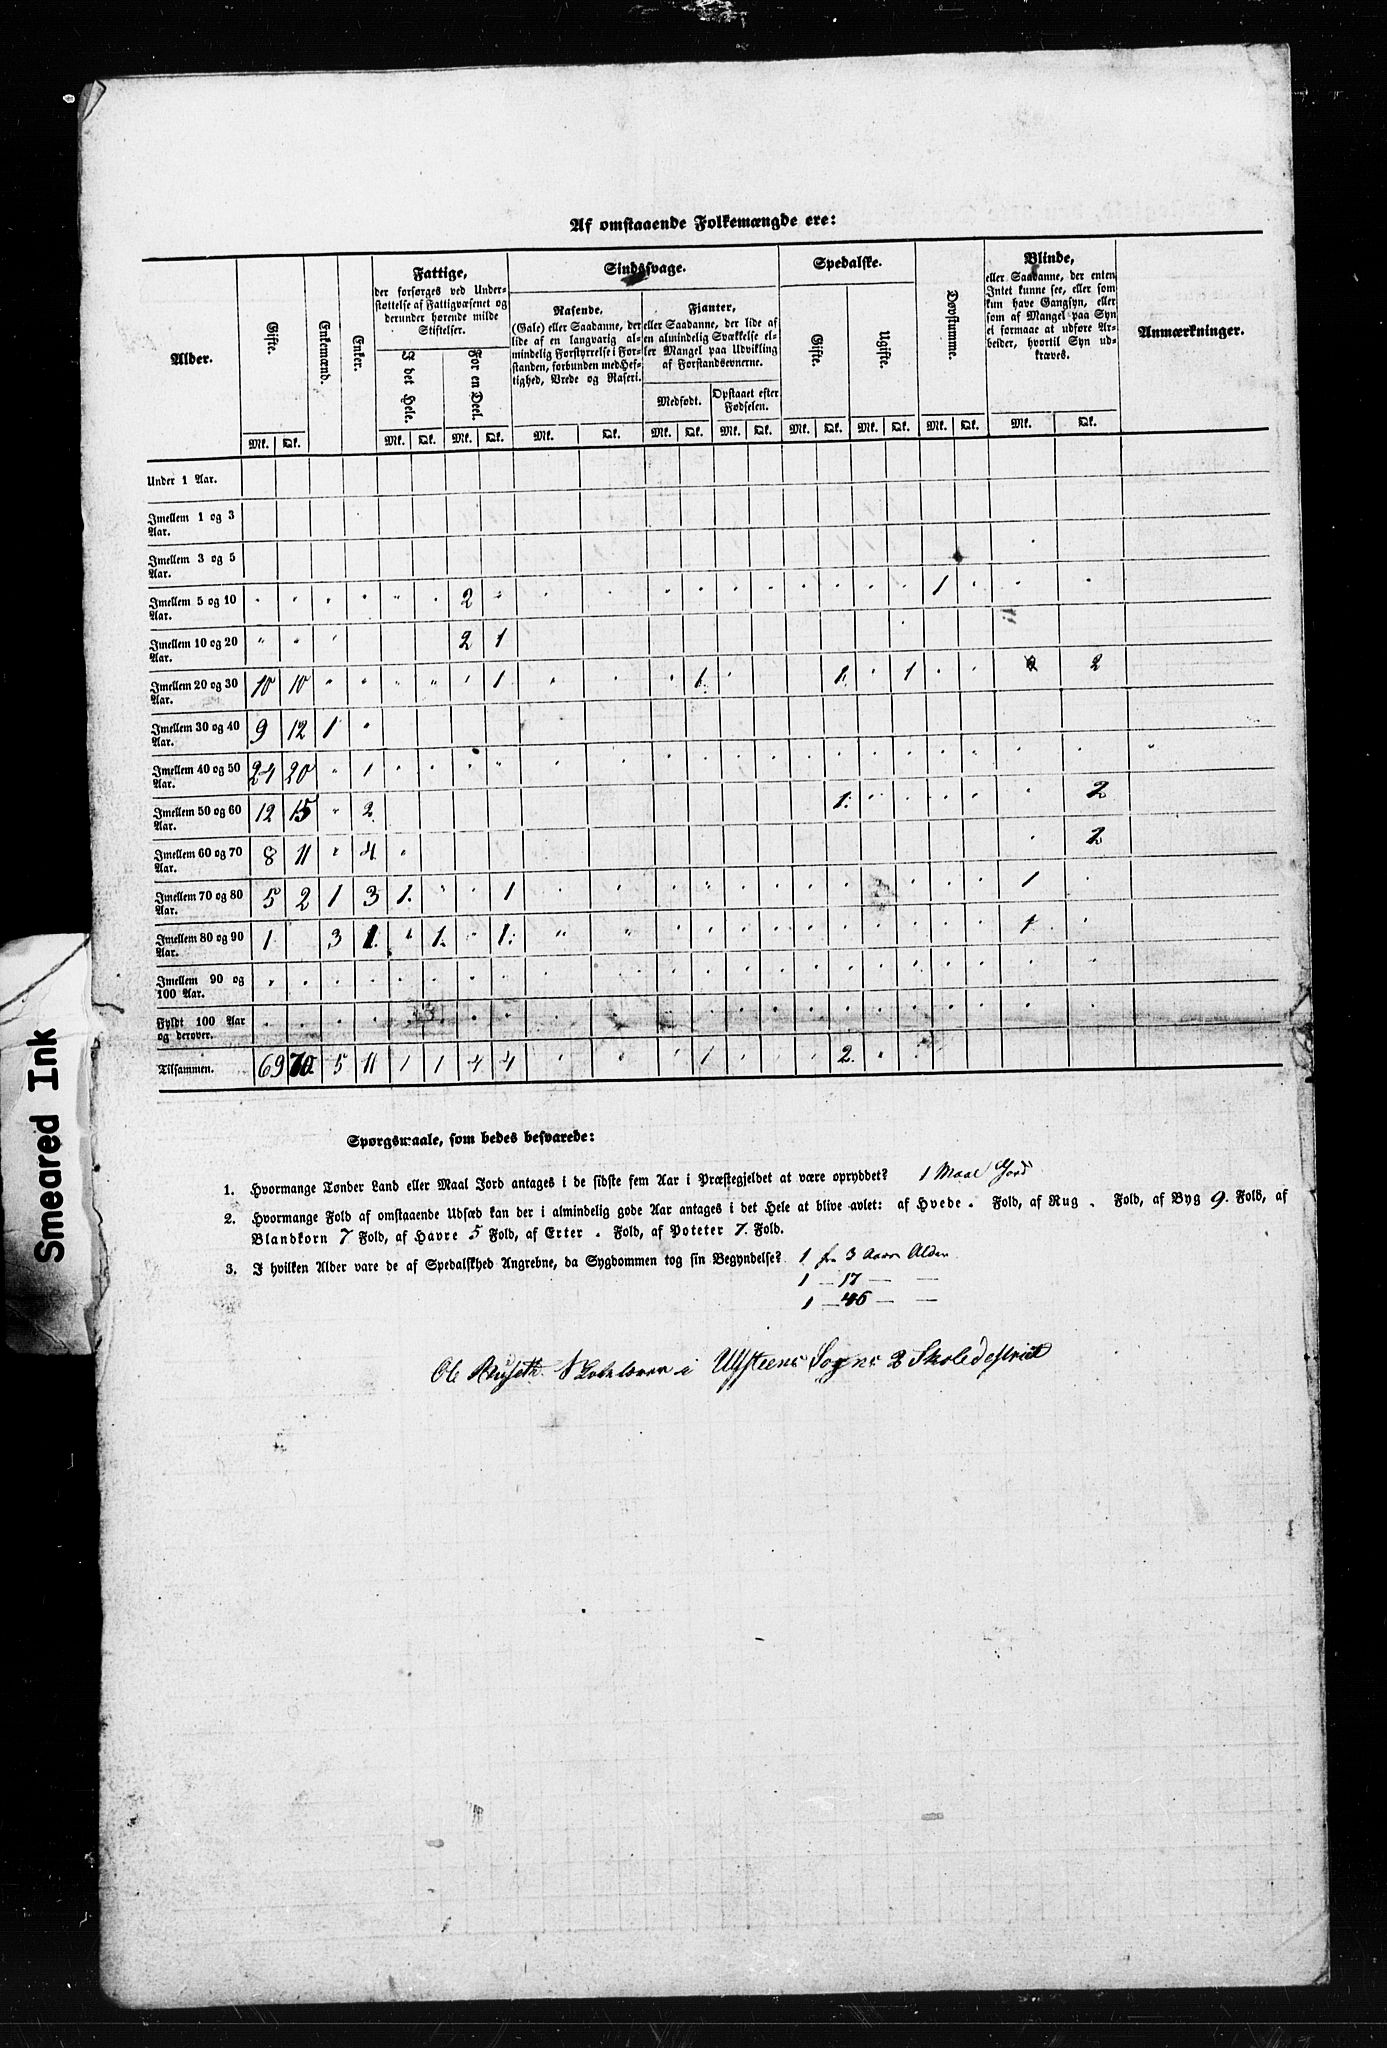 Af omstaaende Folkemængde ere:
Alder.
Gifte.
Enkemænd.
Enker.
Fattige,
der forsørges ved Under-
støttelse af Fattigvæsenet og
derunder hørende milde
Stiftelser.
I det Hele.
For en Deel.
Sindssvage.
Rasende,
(Gale) eller Saadanne, der
lide af en langvarig al-
mindelig Forstyrrelse i For-
standen, forbunden med Hef-
tighed, Vrede og Raseri.
Fianter,
eller Saadanne, der lide af
en almindelig Svækkelse el-
ler Mangel paa Udvikling
af Forstandsevnerne.
Medfødt.
Opstaaet efter
Fødselen.
Spedalske.
Gifte.
Ugifte.
Døvstumme.
Blinde,
eller Saadanne, der enten
Intet kunne see, eller som
kun have Gangsyn, eller
som af Mangel paa Syn
ei formaae at udføre Ar-
beider, hvortil Syn ud-
kræves.
Anmærkninger.
Mk. Qk. Mk. Qk. Mk. Qk. Mk. Qk. Mk. Qk. Mk. Qk. Mk. Qk. Mk. Qk. Mk. Qk. Mk. Qk.
Under 1 Aar.
Imellem 1 og 3
Aar.
Imellem 3 og 5
Aar.
Imellem 5 og 10 " " " " " " 2 " " " " " " " " " " " 1 " " "
Aar.
Imellem 10 og 20 " " " 2 1
Aar.
Imellem 20 og 30 10 10 " " " " " 1 " " " 1. " 1. " 1 " " 2
Aar.
Imellem 30 og 40 9 12 1 "
Aar.
Imellem 40 og 50 24 20 " 1 " " " " " " " " " " " " " " " " " " "
Aar.
Imellem 50 og 60 12 15 " 2 1. " " " " " 2
Aar.
Imellem 60 og 70 8 11 " 4 " " 2
Aar.
Imellem 70 og 80 5 2 1 3 1. " " 1 " " " " " " " " " " " " 1 "
Aar.
Imellem 80 og 90 1 3 1. " 1. " 1. " " " " " " " " " " " " 1 "
Aar.
Imellem 90 og " " " " " " " " " " " " " " " " " " " " " "
100 Aar.
Fyldt 100 Aar " " " " " " " " " " " " " " " " " " " " "
og derover.
Tilsammen. 69 70 5 11 1 1 4 4 " " " 1 " " " 2. " "
Spørgsmaale, som bedes besvarede:
1. Hvormange Tønder Land eller Maal Jord antages i de sidste fem Aar i Præstegjeldet at være opryddet? 1 Maal Jord
2. Hvormange Fold af omstaaende Udsæd kan der i almindelig gode Aar antages i det Hele at blive avlet: af Hvede " Fold, af Rug " Fold, af Byg 9. Fold, af
Blandkorn 7 Fold, af Havre 5 Fold, af Erter " Fold, af Poteter 7. Fold.
3. I hvilken Alder vare de af Spedalskhed Angrebne, da Sygdommen tog sin Begyndelse? 1 fra 3 Aars Alder
1 — 17 — —
1 — 46 — —
Ole i Ulfsteens Sogns 2 Skoledistrict
Smeared Ink